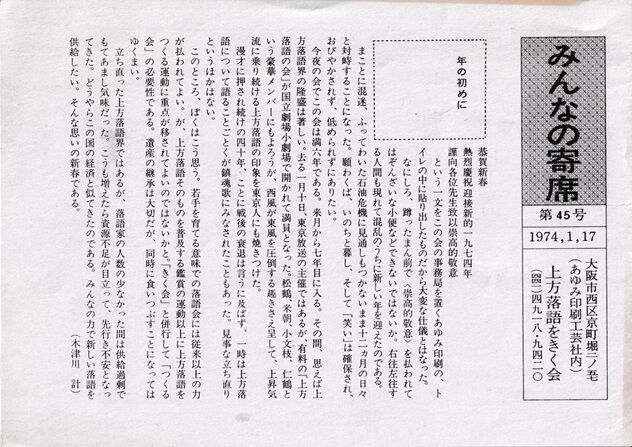 みんなの寄席
第45号
1974,1,17
大阪市西区京町堀二ノ五
(あゆみ印刷工芸社内)
上方落語をきく会
(四四一)四九一八・九四二〇
年の初めに
恭賀新春
熱烈慶祝迎接新的一九七四年
謹向各位先生致以崇高的敬意
という一文をこの会の事務局を置くあゆみ印刷の、ト
イレの中に貼り出したものだから大変な仕儀とはなった。
なにしろ、蹲ったまん前で〈崇高的敬意〉を払われて
はぞんざいな小便などできないではないか。右往左往す
る人間も現れて混乱のうちに新しい年を迎えたのである。
まことに混迷、ふってわいた石油危機に見通しもつかないまま十二ヵ月の日々
と対峙することになった。願わくば、いのちと暮し、そして「笑い」は確保され、
おびやかされず、低められずにありたい。
今夜の会でこの会は満六年である。来月から七年目に入る。その間、思えば上
方落語界の隆盛は著しい。去る一月十日、東京放送の主催ではあるが、有料の「上方
落語の会」が国立劇場小劇場で開かれて満員となった。松鶴、米朝、小文枝、仁鶴と
いう豪華メンバーにもよろうが、西風が東風を圧倒する趣きさえ呈して、上昇気
流に乗り続ける上方落語の印象を東京人にも焼きつけた。
漫才に押され続けの四十年、ことに戦後の衰退は言うに及ばず、一時は上方落
語について語ることごとくが鎮魂歌にみなされたこともあった。見事な立ち直り
というほかはない。
このところ、ぼくはこう思う。若手を育てる意味での落語会には従来以上の力
が払われてよい。が、上方落語そのものを普及する鑑賞の運動以上に上方落語を
つくる運動に重点が移されてよいのではないかと。「きく会」と併行して「つくる
会」の必要性である。遺産の継承は大切だが、同時に食いつぶすことになっては
ゆくまい。
立ち直った上方落語界ではあるが、落語家の人数の少なかった間は供給過剰で
もてあまし気味だった。こうも増えたら資源不足が目立って、先行き不安となっ
てきた。どうやらこの国の経済と似てきたのである。みんなの力で新しい落語を
供給したい。そんな思いの新春である。
(木津川 計)